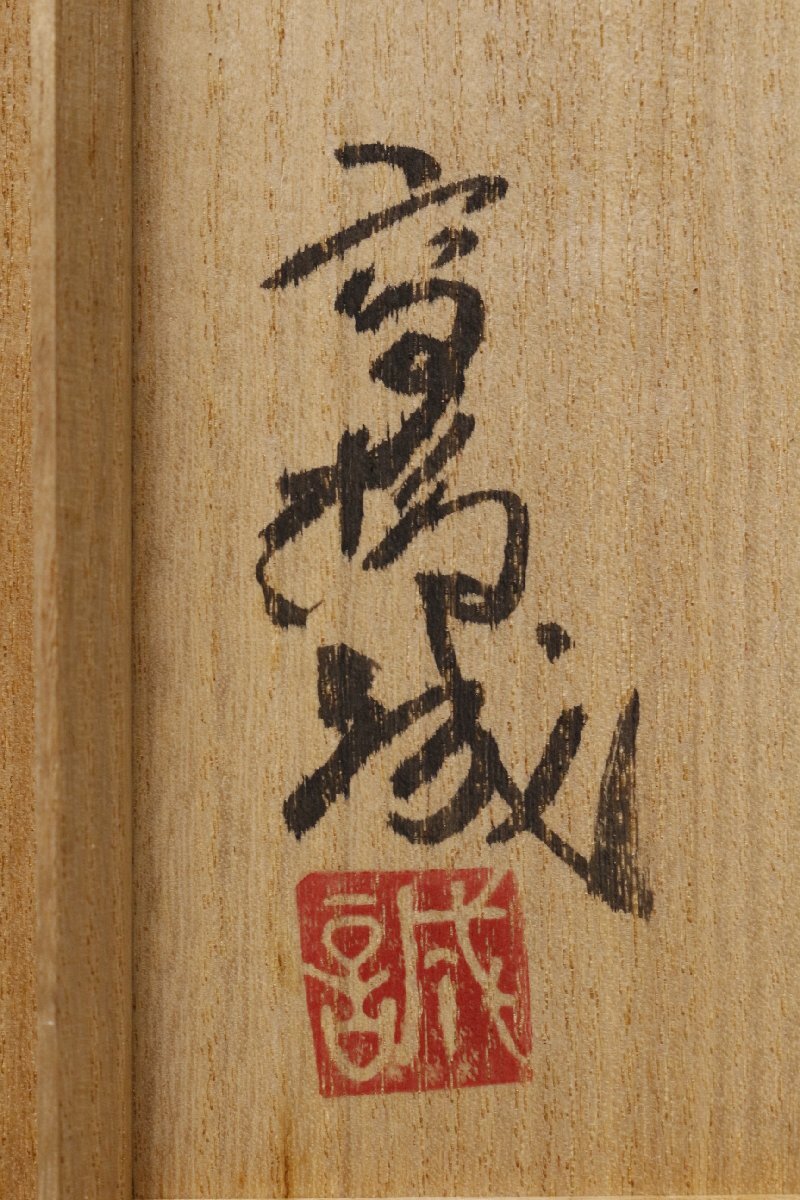 高橋誠
誠